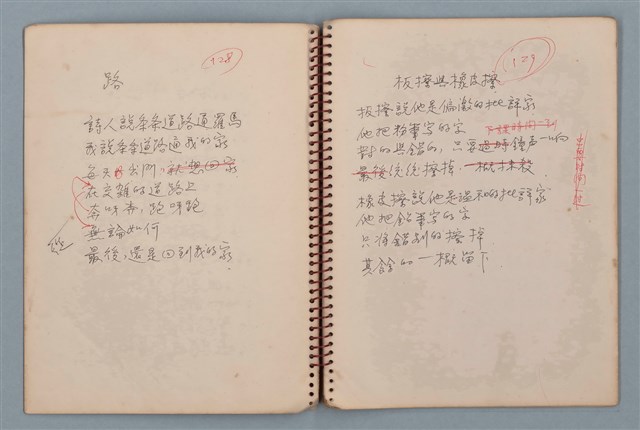 128
路
詩人說条条道路通羅馬
我說条条道路通我的家
每天出門,就想回家
在交雜的道路上
奔呀奔,跑呀跑
無論如何
最後,還是回到我的家
129
板擦與橡皮擦
板擦說他是偏激的批評家
他把粉筆字的字
下課時間一到
對的與錯的,只要鐘声一响
最後統統擦掉,一概抹殺
橡皮擦說他是溫和的批評家
他把鉛筆字的字
只将錯別的擦掉
其餘的一概留下